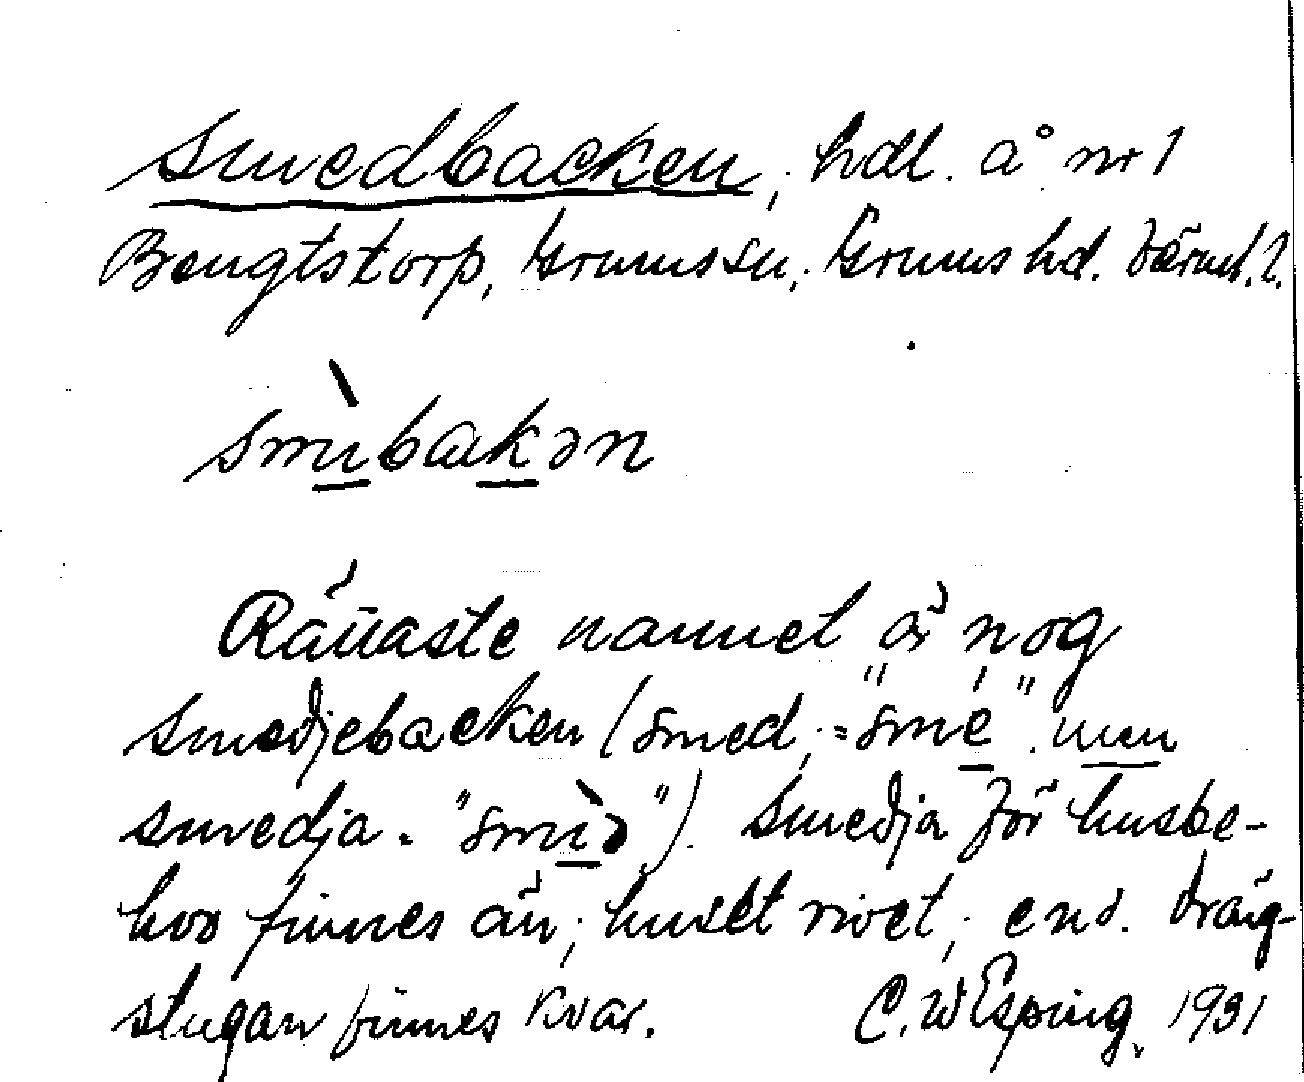 Smedbacken, hdl. å nr 1
Bengtstorp, Grums sn, Grums hd. Värml. l.
smı̀bakən
Rättaste namnet är nog
Smedjebacken (smed, = "smé", men
smedja = "smı̀ə"). Smedja för husbe-
hov finnes än, huset rivet, end. dräng-
stugan finnes kvar. C. W Esping, 1931